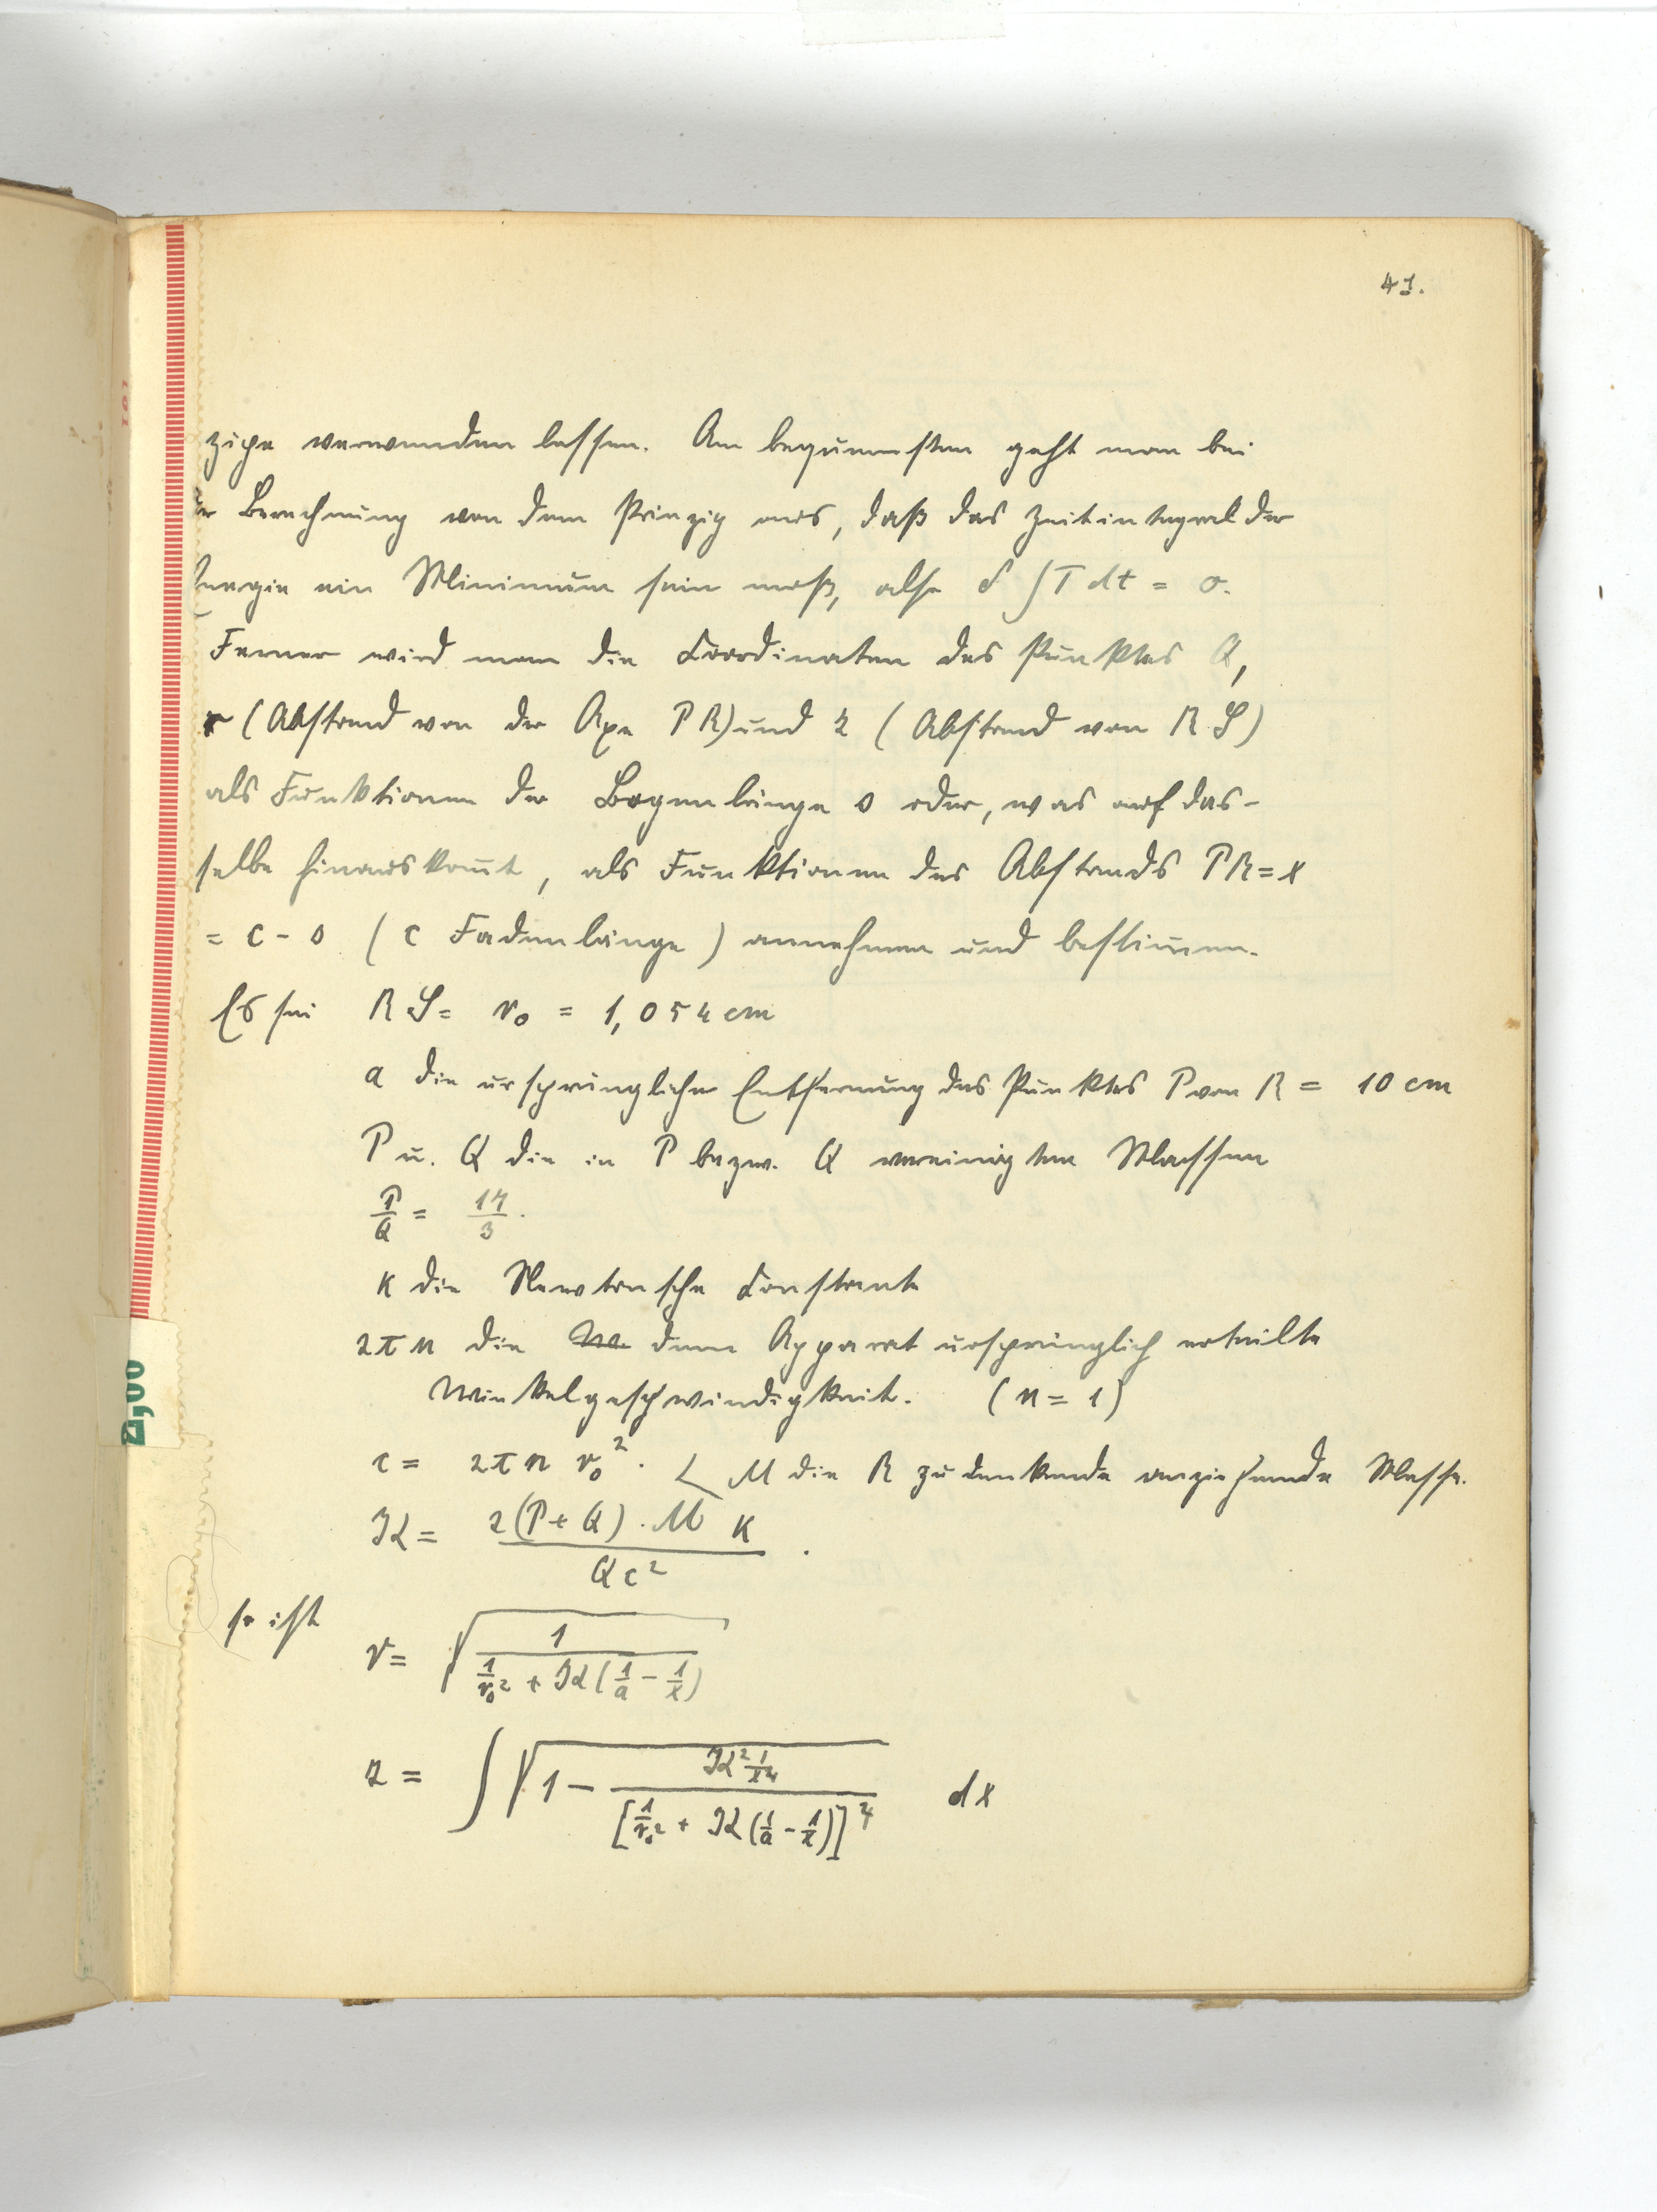 41.
zipe verwenden lassen. Am bequemsten geht man bei
der Berechnung von dem Prinzip aus, daß das Zeitintegral der
Energie ein Minimum sein muß, also δ ∫ T dt = 0.
Ferner wird man die Coordinaten des Punktes Q,
r (Abstand von der Axe PR) und z (Abstand von RS)
als Funktionen der Bogenlänge s oder, was auf das-
selbe hinauskom̄t, als Funktionen des Abstands PR = x
= c - s (c Fadenlänge) annehmen und bestim̄en.
Es sei RS = r₀ = 1,054 cm
a die ursprüngliche Entfernung des Punktes P von R = 10 cm
P u. Q die in P bezw. Q vereinigten Massen
P/Q = 17/3.
K die Newtonsche Constante
2πn die dem Apparat ursprünglich erteilte
Winkelgeschwindigkeit. (n = 1)
c = 2πn r₀². M die R zu denkende anziehende Masse.
𝔎 = 2(P + Q) . M K / Q c² .
so ist r = √(1 / (1/r₀² + 𝔎(1/a - 1/x)))
z = ∫ √(1 - 𝔎² 1/x⁴ / [1/r₀² + 𝔎(1/a - 1/x)]⁴) dx
2,00